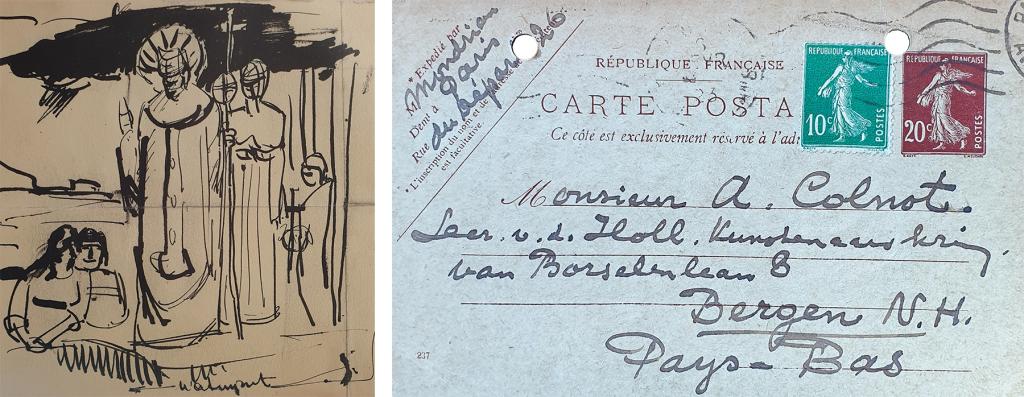 * Expédié par
M Mondrian
Demt à Paris
Rue du Départ 26
* L'inscription du nom et de
est facultative.
RÉPUBLIQUE FRANÇAISE
CARTE POSTA
Ce côté est exclusivement réservé à l'adr
RÉPUBLIQUE FRANÇAISE
10c
POSTES
RÉPUBLIQUE FRANÇAISE
20c
POSTES
Monsieur A. Colnot.
Secr. v. d. Holl. Kunstenaarskring
van Borselenlaan 8
Bergen N.H.
Pays-Bas
237